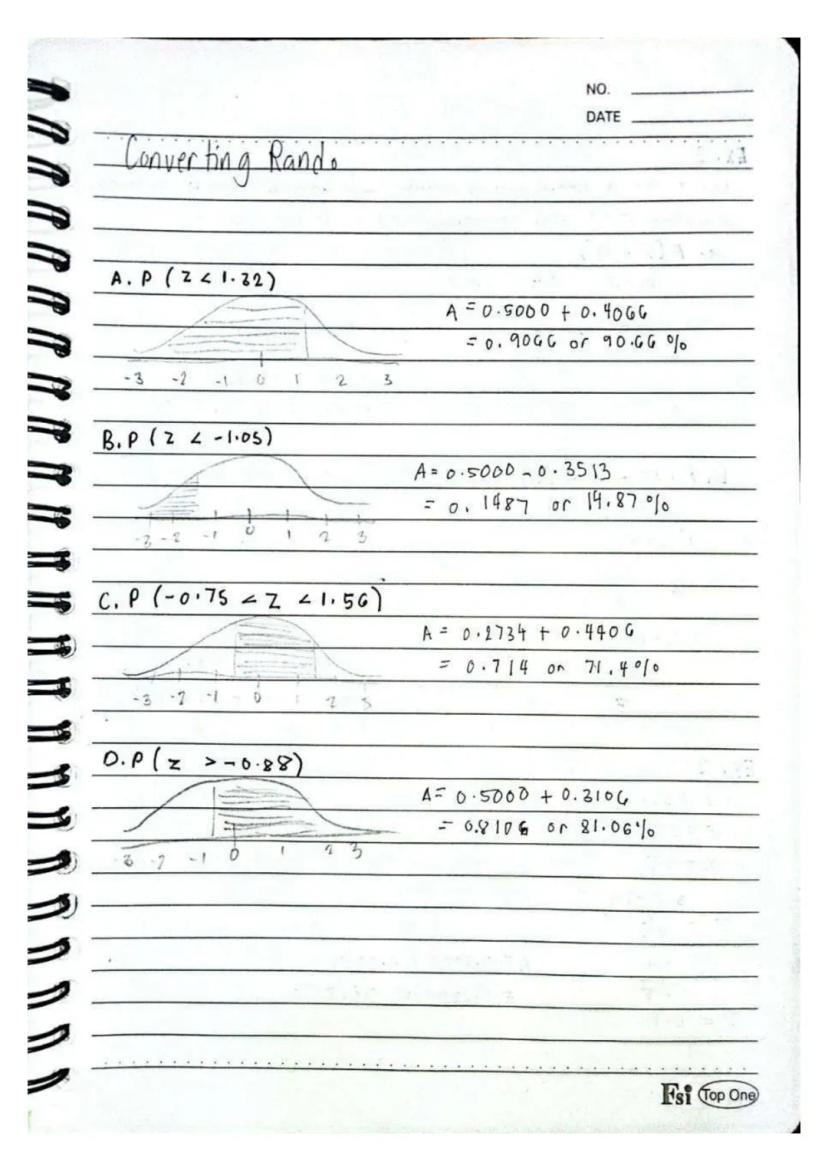 NO.
DATE
Converting Rand.
A. P ( Z < 1.32)
A = 0.5000 + 0.4066
= 0.9066 or 90.66 %
-3 -2 -1 0 1 2 3
B. P ( Z < -1.05)
A = 0.5000 - 0.3513
= 0.1487 or 14.87 %
-3 -2 -1 0 1 2 3
C. P (-0.75 < Z < 1.56)
A = 0.2734 + 0.4406
= 0.714 or 71.4%
-3 -2 -1 0 1 2 3
D. P ( z > -0.88)
A = 0.5000 + 0.3106
= 0.8106 or 81.06%
-3 -2 -1 0 1 2 3
Fsi Top One